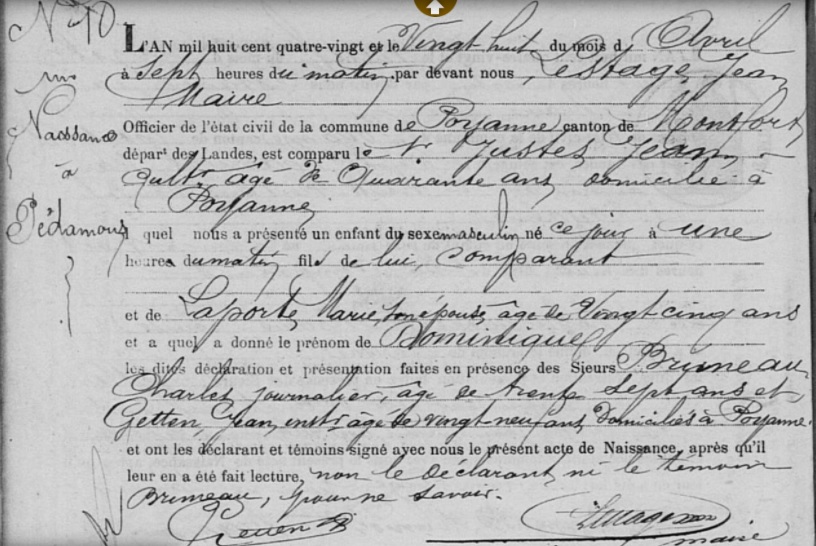 N° 10
Naissance
à
Pédamons
L'AN mil huit cent quatre-vingt et le Vingt huit du mois d'Avril
à Sept heures du matin, par devant nous, Lestage, Jean
Maire
Officier de l'état civil de la commune de Poyanne canton de Montfort
départ des Landes, est comparu le Sr. Justes Jean
cultr âgé de Quarante ans domicilié à
Poyanne
quel nous a présenté un enfant du sexe masculin né ce jour à une
heures du matin, fils de lui, Comparant
et de Laporte Marie, son épouse, âgée de Vingt cinq ans
et a quel a donné le prénom de Dominique
les dites déclaration et présentation faites en présence des Sieurs Bruneau
Charles journalier, âgé de trente sept ans et
Getten, Jean, instr âgé de vingt neuf ans, domiciliés à Poyanne.
et ont les déclarant et témoins signé avec nous le présent acte de Naissance, après qu'il
leur en a été fait lecture, non le déclarant ni le témoin
Bruneau, pour ne savoir.
maire